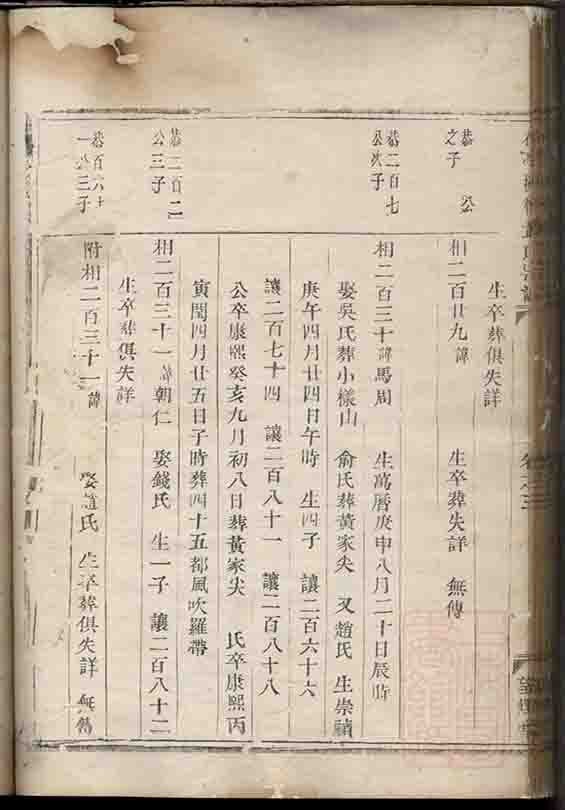 生卒葬俱失詳
恭 公
之子
相二百廿九諱 生卒葬失詳 無傳
恭二百七
公次子
相二百三十諱馬周 生萬曆庚申八月二十日辰時
娶吳氏葬小樣山 俞氏葬黃家尖 又趙氏 生崇禎
庚午四月廿四日午時 生四子 讓二百六十六
讓二百七十四 讓二百八十一 讓二百八十八
公卒康熙癸亥九月初八日葬黃家尖 氏卒康熙丙
寅閏四月廿五日子時葬四十五都風吹羅帶
恭二百二
公三子
相二百三十一諱朝仁 娶錢氏 生一子 讓二百八十二
生卒葬俱失詳
恭百六十
一公三子
附相二百三十一諱 娶趙氏 生卒葬俱失詳 無傳
卷之三